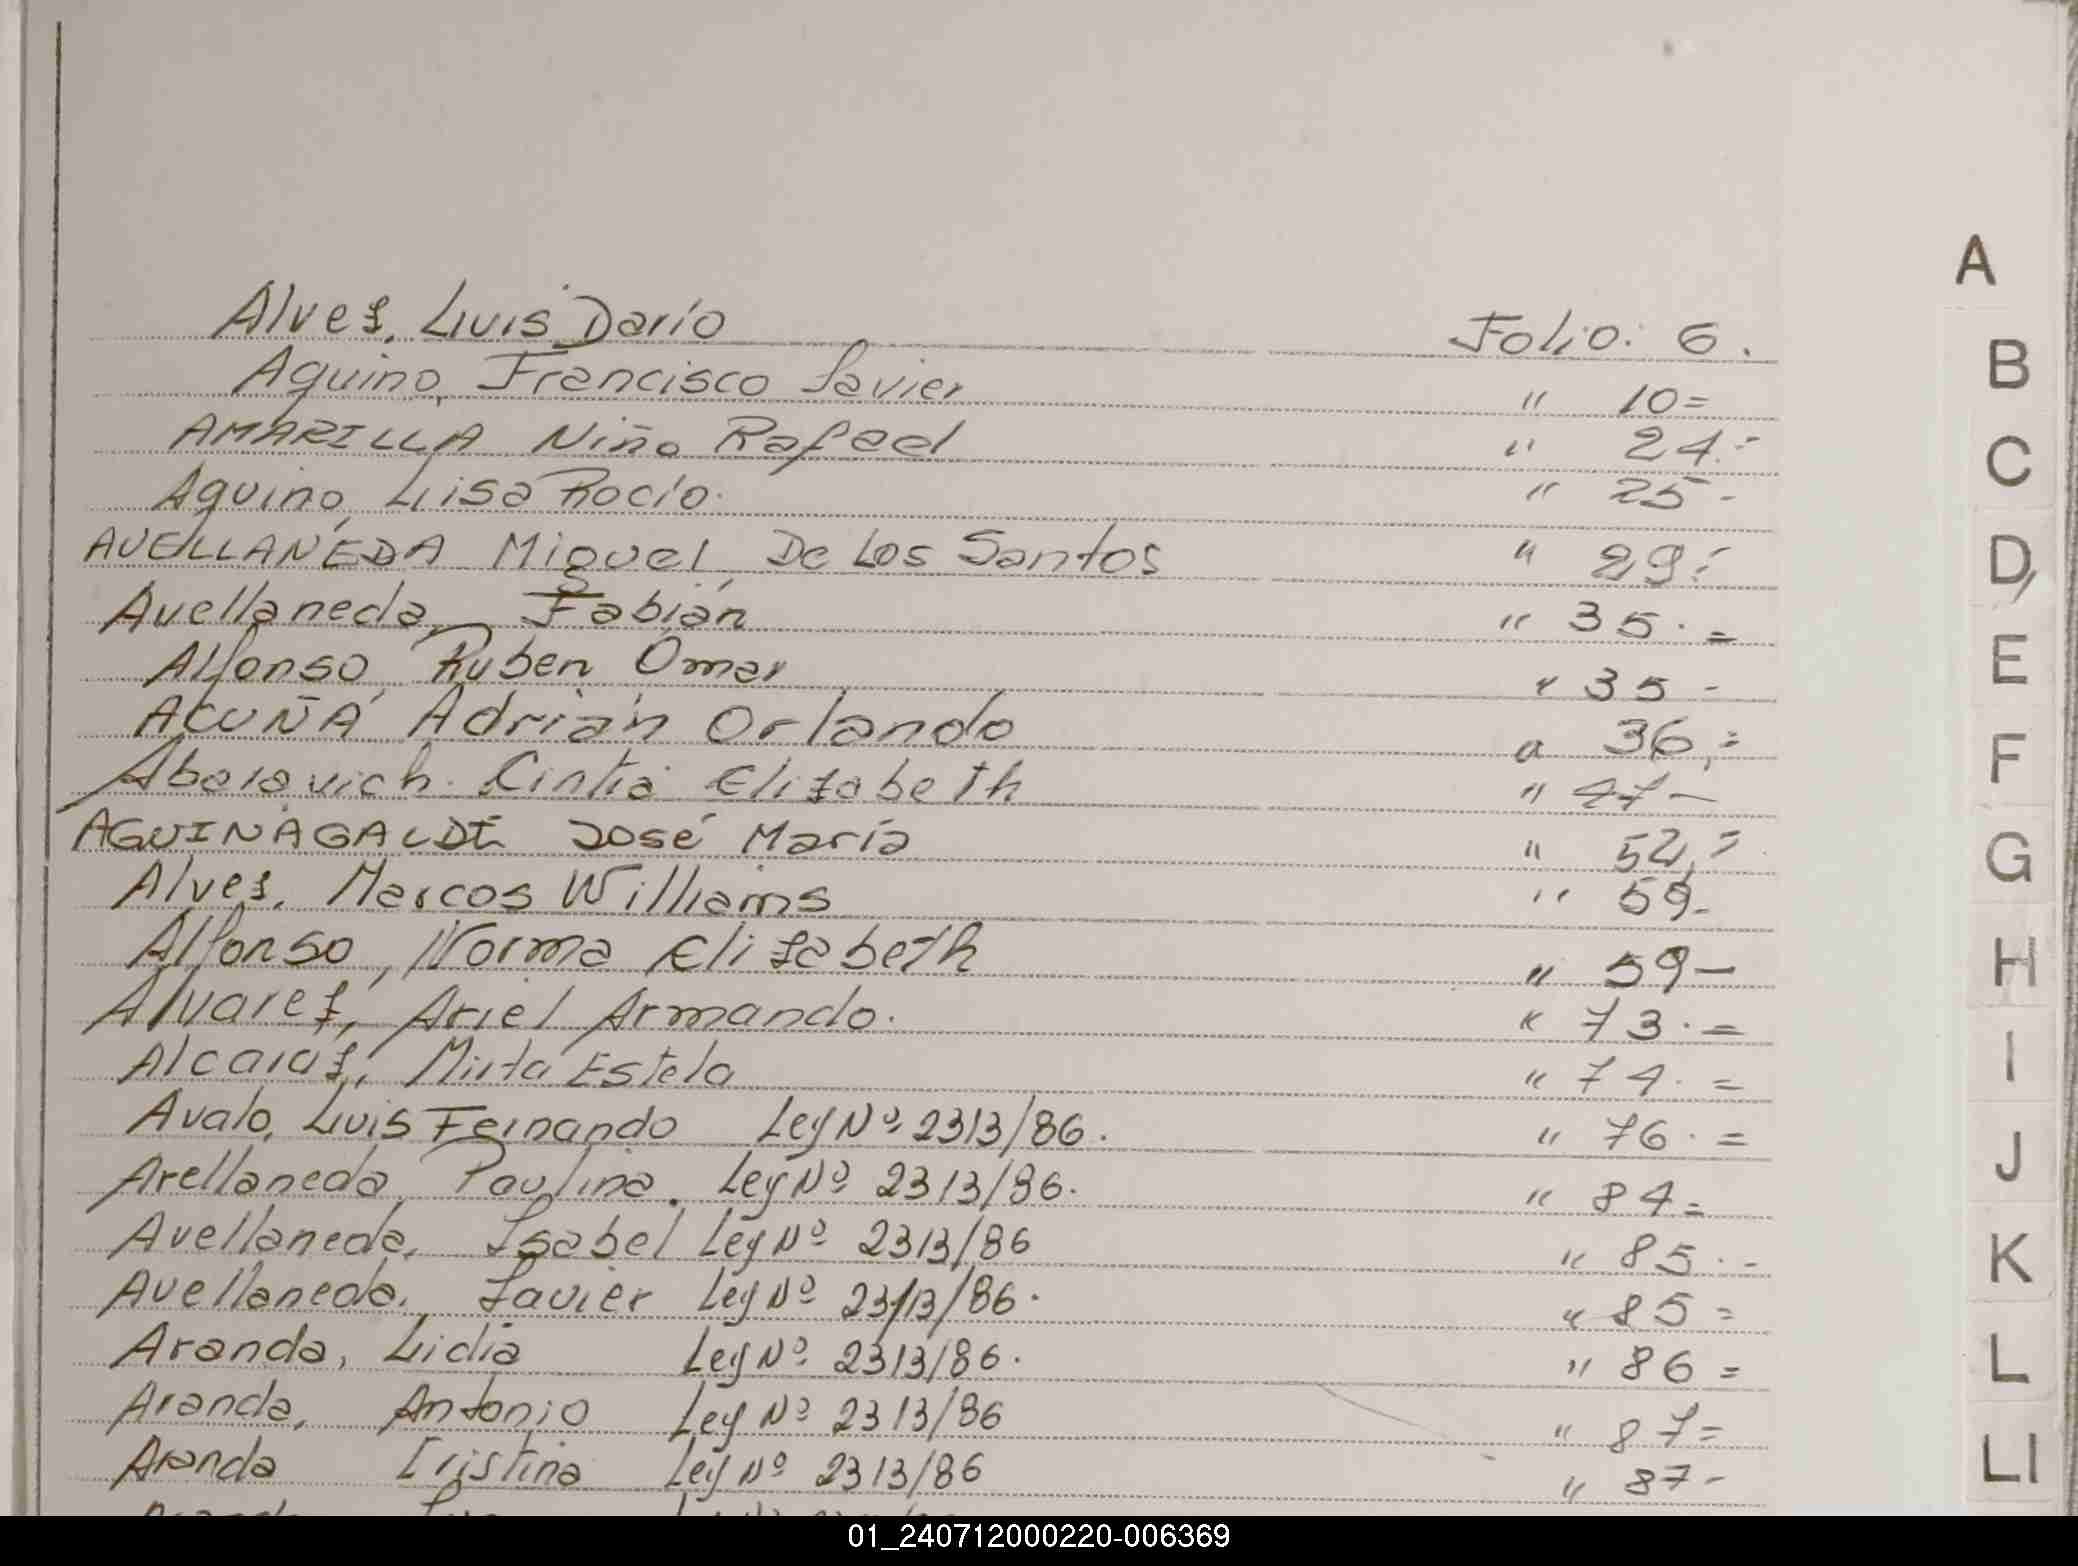 Alvez, Luis Darío Folio: 6.
Aquino, Francisco Javier " 10=
AMARILLA Niño Rafael " 24.=
Aquino, Lisa Rocío. " 25-
AVELLANEDA Miguel, De Los Santos " 29.=
Avellaneda, Fabián " 35.=
Alfonso, Ruben Omar " 35-
ACUÑA Adrián Orlando " 36,=
Abaravich. Cintia Elizabeth " 47-
AGUINAGALDE José María " 52,=
Alvez, Marcos Williams " 59-
Alfonso, Norma Elizabeth " 59-
Alvarez, Ariel Armando. " 73.=
Alcaraz, Mirta Estela " 74.=
Avalo, Luis Fernando Ley Nº 2313/86. " 76.=
Avellaneda, Paulina. Ley Nº 2313/86. " 84=
Avellaneda, Isabel Ley Nº 2313/86 " 85.-
Avellaneda, Javier Ley Nº 2313/86. " 85=
Aranda, Lidia Ley Nº 2313/86. " 86=
Aranda, Antonio Ley Nº 2313/86 " 87=
Aranda Cristina Ley Nº 2313/86 " 87-
A
B
C
D
E
F
G
H
I
J
K
L
Ll
01_240712000220-006369